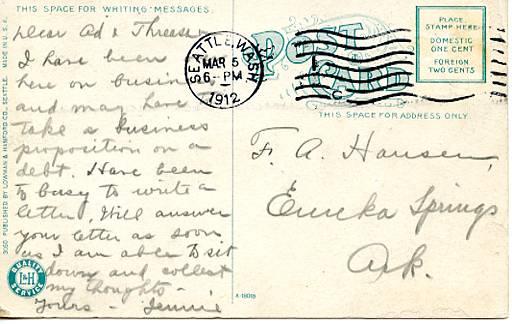 THIS SPACE FOR WRITING MESSAGES.
Dear Ad &
I have been
here on busin
and may have to
take a business
proposition on a
debt. Have been
to busy to write a
letter, Will answer
your letter as soon
as I am able to sit
down and collect
my thoughts -
Yours - Jennie
3050 PUBLISHED BY LOWMAN & HANFORD CO., SEATTLE. MADE IN U.S.A.
QUALITY
L&H
SERVICE
SEATTLE, WASH.
MAR 5
6-PM
1912
POST
CARD
PLACE
STAMP HERE
DOMESTIC
ONE CENT
FOREIGN
TWO CENTS
THIS SPACE FOR ADDRESS ONLY.
F. A. Hansen,
Eureka Springs
Ark.